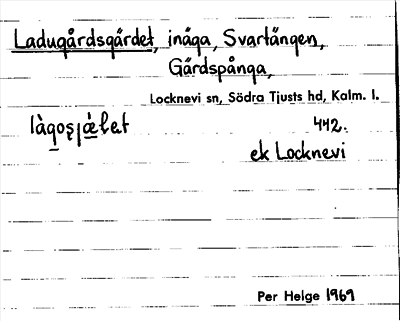 Ladugårdsgärdet, inäga, Svartängen,
Gärdspånga,
Locknevi sn, Södra Tjusts hd, Kalm. l.
442.
ek Locknevi
Per Helge 1969